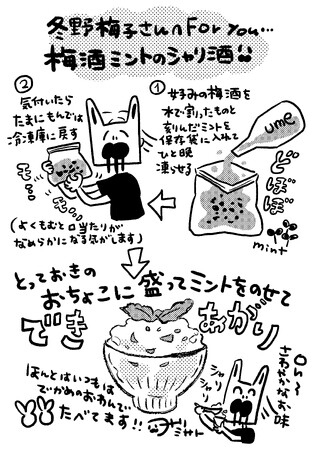 冬野梅子さんの For you…
梅酒ミントのシャリ酒!!
①
好みの梅酒を
水で割ったものと
刻んだミントを
保存袋に入れて
ひと晩
凍らせる
ume
どぼぼぼ
mint
②
気付いたら
たまにもんでは
冷凍庫に戻す
モミ モミ
(よくもむと口当たりが
なめらかになる気がします)
とっておきの
おちょこに盛ってミントをのせて
できあがり
シャリ
シャリ
さわやかなお味
ほんとはいつもは
でかめのおわんで
たべてます!!